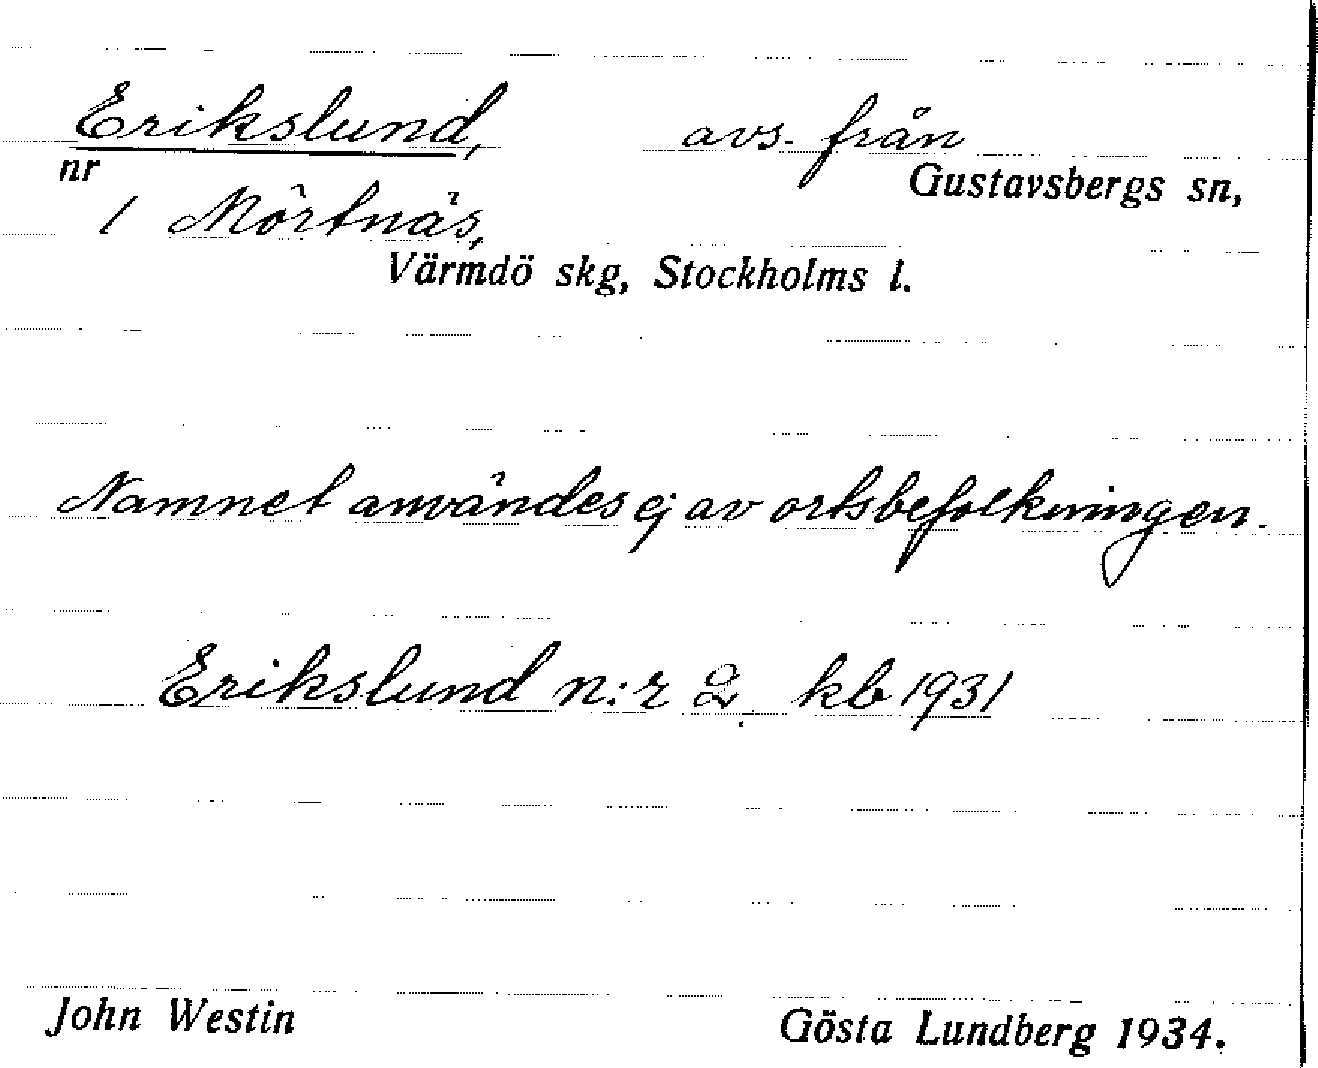 Erikslund, avs. från
nr Gustavsbergs sn,
1 Mörtnäs,
Värmdö skg, Stockholms l.
Namnet användes ej av ortsbefolkningen.
Erikslund n:r 2. kb 1931
John Westin Gösta Lundberg 1934.